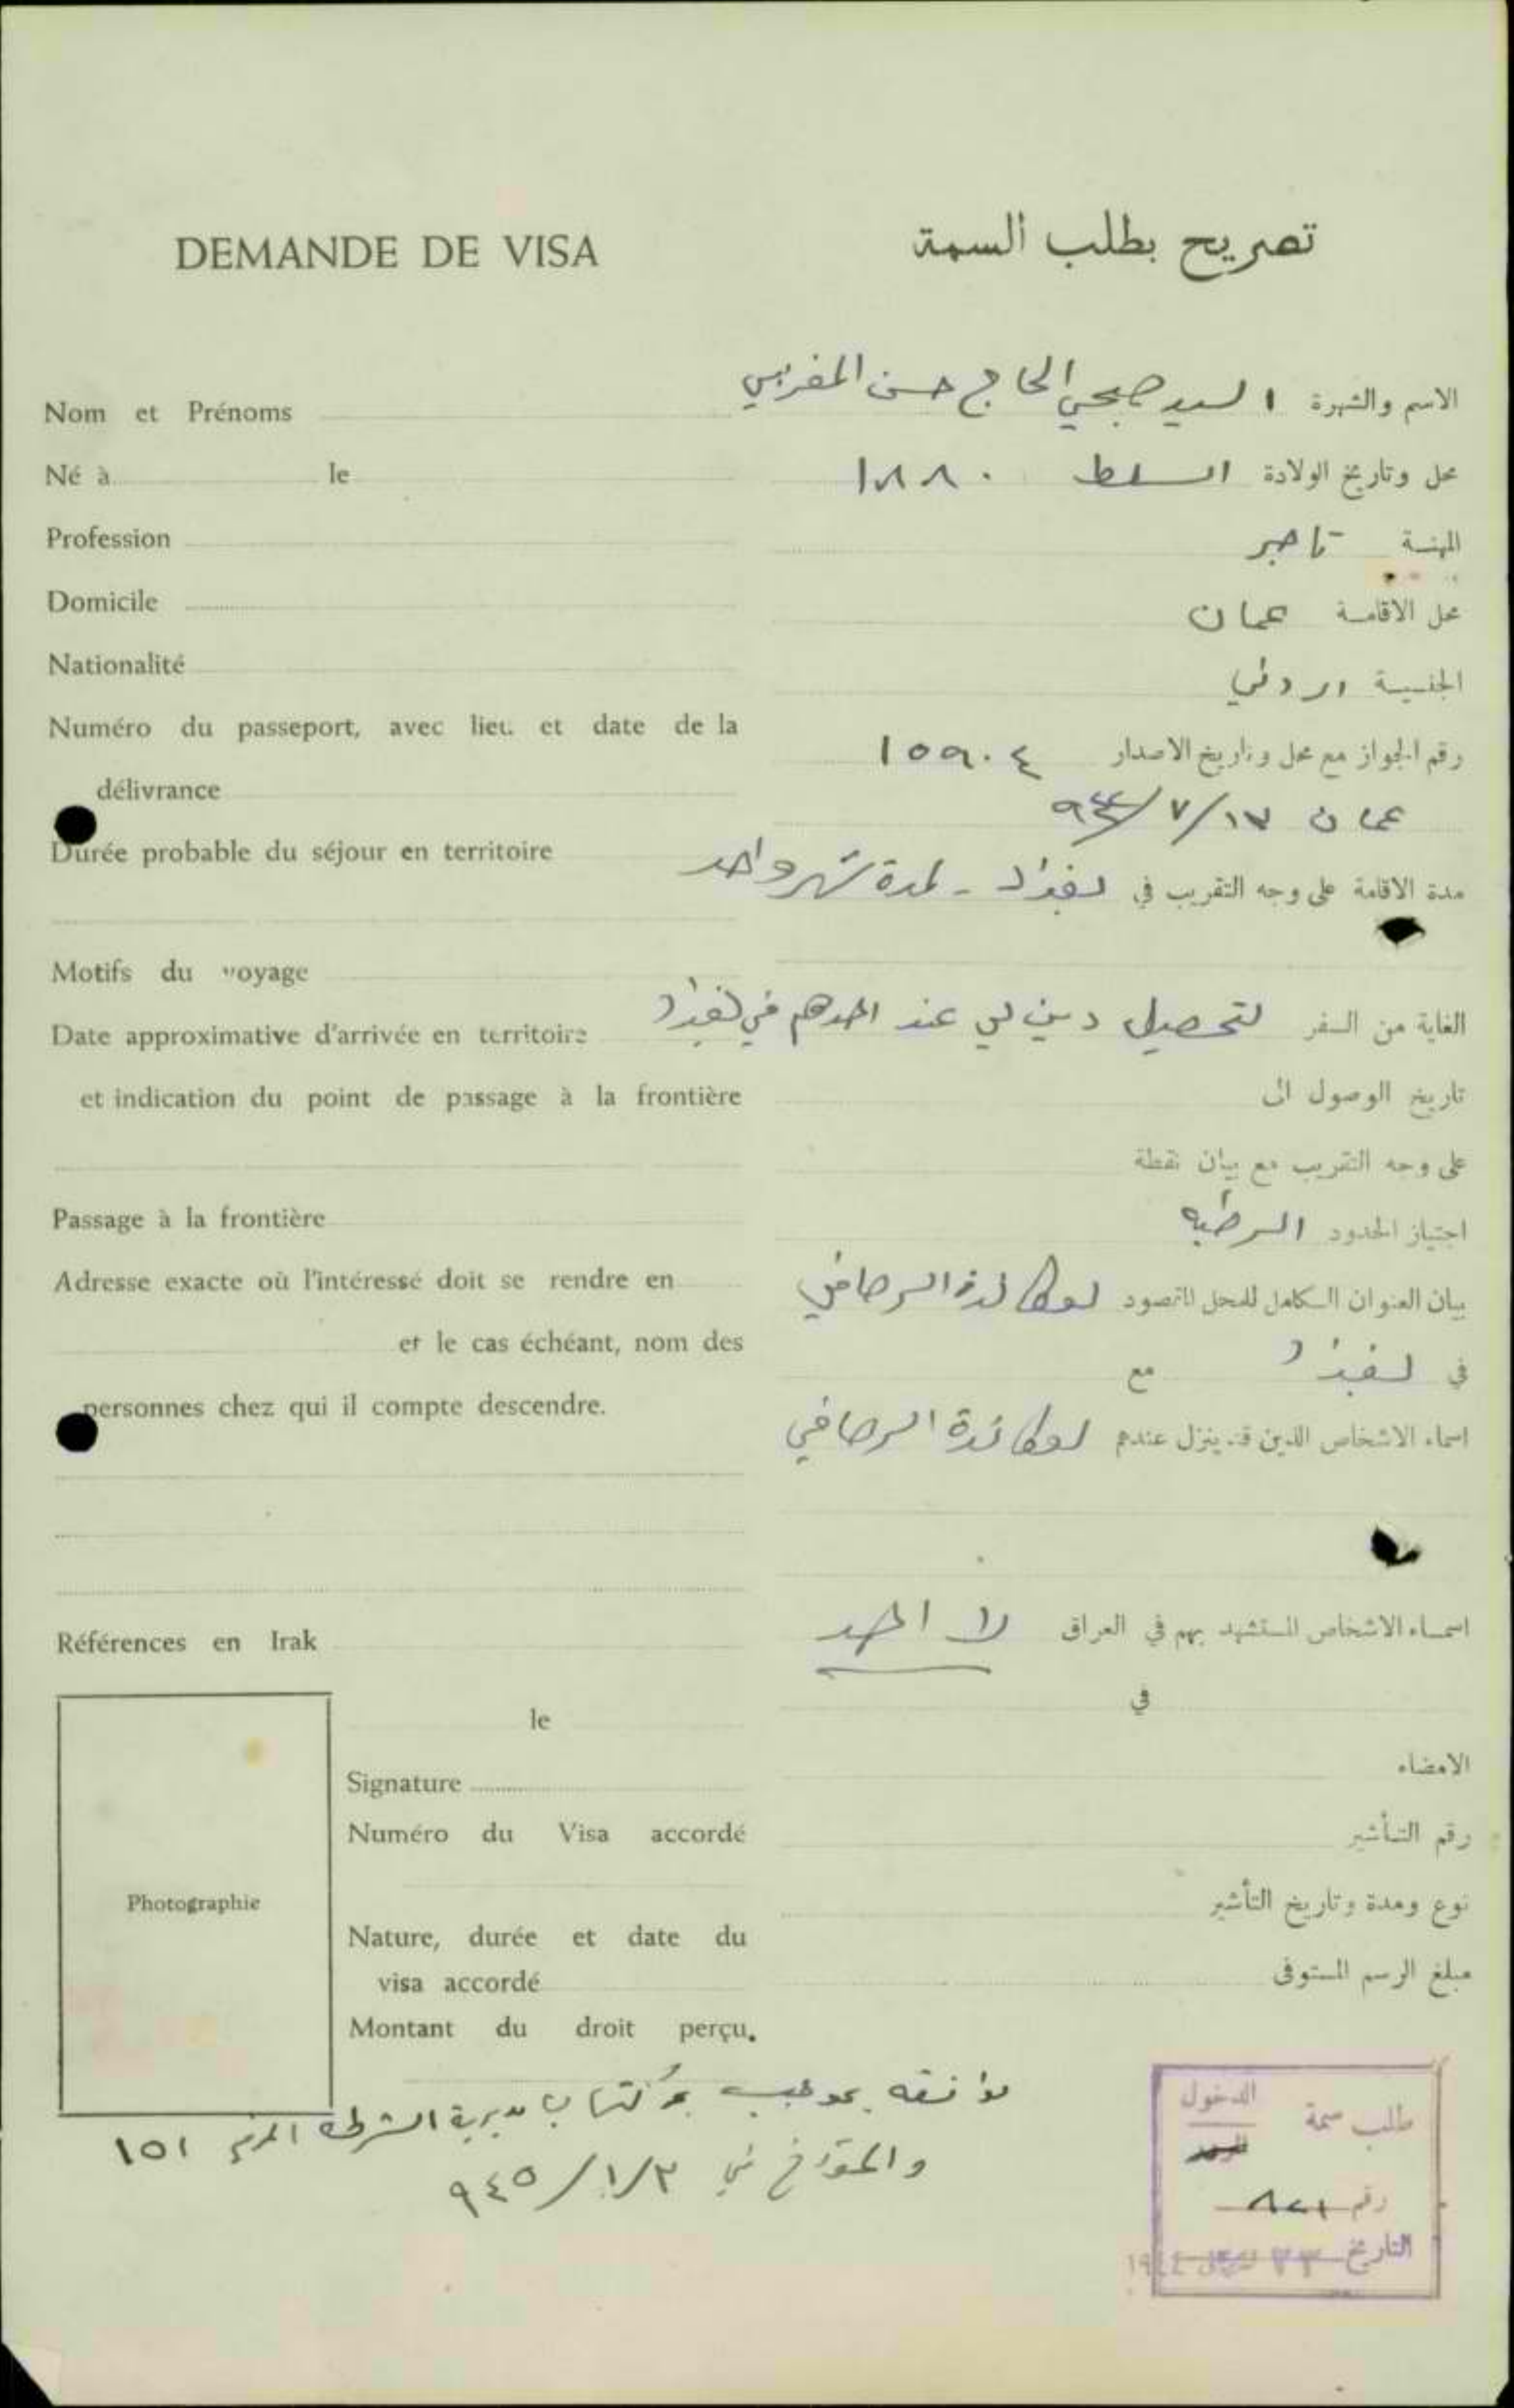 DEMANDE DE VISA
تصريح بطلب السمة
Nom et Prénoms
الاسم والشهرة السيد صبحي الحاج حسن المغربي
Né à le
محل وتاريخ الولادة السلط ١٨٨٠
Profession
المهنة تاجر
Domicile
محل الاقامة عمان
Nationalité
الجنسية اردني
Numéro du passeport, avec lieu et date de la
délivrance
رقم الجواز مع محل وتاريخ الاصدار ١٥٩٠٤
عمان ١٧/٧/٩٤٤
Durée probable du séjour en territoire
مدة الاقامة على وجه التقريب في بغداد - لمدة شهر واحد
Motifs du voyage
الغاية من السفر لتحصيل دين لي عند احدهم في بغداد
Date approximative d'arrivée en territoire
et indication du point de passage à la frontière
تاريخ الوصول الى
على وجه التقريب مع بيان نقطة
Passage à la frontière
اجتياز الحدود الرطبه
Adresse exacte où l'intéressé doit se rendre en
et le cas échéant, nom des
personnes chez qui il compte descendre.
بيان العنوان الكامل للمحل المقصود لوكاندة الرصافي
في بغداد مع
اسماء الاشخاص الذين قد ينزل عندهم لوكاندة الرصافي
Références en Irak
اسماء الاشخاص المستشهد بهم في العراق لا احد
le
في
Signature
الامضاء
Numéro du Visa accordé
رقم التأشير
Photographie
Nature, durée et date du
visa accordé
نوع ومدة وتاريخ التأشير
Montant du droit perçu.
مبلغ الرسم المستوفى
موافقه بموجب كتاب مديرية الشرطه المرقم ١٥١
والمؤرخ في ٣/١/٩٤٥
طلب سمة الدخول
رقم ٨٢١
التاريخ ٢٣ ١٩٤٤